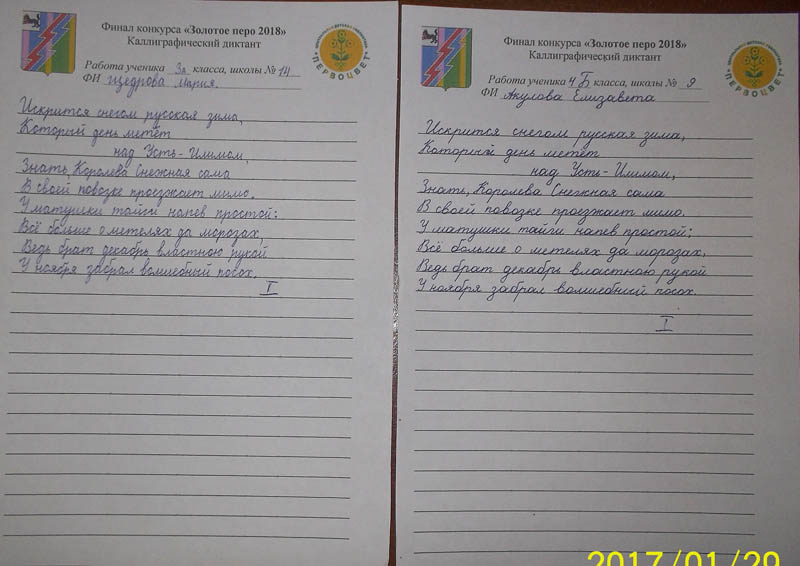 Финал конкурса «Золотое перо 2018»
Каллиграфический диктант
Работа ученика 3а класса, школы № 14
ФИ Щедрова Мария.
ПЕРВОЦВЕТ
Искрится снегом русская зима,
Который день метёт
над Усть-Илимом,
Знать, Королева Снежная сама
В своей повозке проезжает мимо.
У матушки тайги напев простой:
Всё больше о метелях да морозах,
Ведь брат декабрь властною рукой
У ноября забрал волшебный посох.
I
Финал конкурса «Золотое перо 2018»
Каллиграфический диктант
Работа ученика 4 Б класса, школы № 9
ФИ Акулова Елизавета
ПЕРВОЦВЕТ
Искрится снегом русская зима,
Который день метёт
над Усть-Илимом,
Знать, Королева Снежная сама
В своей повозке проезжает мимо.
У матушки тайги напев простой:
Всё больше о метелях да морозах,
Ведь брат декабрь властною рукой
У ноября забрал волшебный посох.
I
2017/01/29